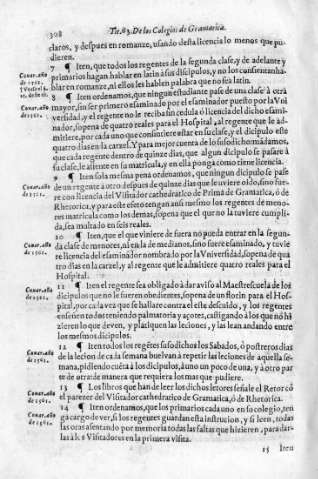 308 Tit.63. De los Colegios de Gramatica.
claros, y despues en romanze, usando desta licencia lo menos que pu-
dieren.
7 ¶ Iten, que todos los regentes de la segunda clase, y de adelante y
primarios hagan hablar en latin a sus dicipulos, y no les consientan ha-
blar en romanze, ni ellos les hablen palabra que no sea latina.
8 ¶ Iten ordenamos, que ningun estudiante pase de una clase à otra
mayor, sin ser primero esaminado por el esaminador puesto por la Uni
versidad, y el regente no le reciba sin cedula ó licencia del dicho esami-
nador, so pena de quatro reales para el Hospital, al regente que le ad-
mitiere, por cada uno que consintiere estar en su clase, y el dicipulo esté
quatro dias en la carzel. Y para mejor cuenta de lo susodicho mãdamos,
que cada regente dentro de quinze dias, que algun dicipulo se pasare à
su clase, le asiente en la matricula, y en ella ponga como tiene licencia.
9 ¶ Iten so la mesma pena ordenamos, que ningun dicipulo se pase
de un regente a otro despues de quinze dias que le uviere oido, sino fue-
re con licencia del Visitador cathedratico de Prima de Gramatica, ó de
Rhetorica, y para este efeto tengan ansi mesmo los regentes de meno-
res matricula como los demas, so pena que el que no la tuviere cumpli-
da, sea multado en seis reales.
10 ¶ Iten, que el que viniere de fuera no pueda entrar en la segun-
da clase de menores, ni en la de medianos, sino fuere esaminado, y tuvie
re licencia del esaminador nombrado por la Universidad, so pena de qua
tro dias en la carzel, y al regente que le admitiere quatro reales para el
Hospital.
11 ¶ Iten el regente sea obligado à dar aviso al Maestrescuela de los
dicipulos que no le fueren obedientes, so pena de un florin para el Hos-
pital, por cada vez que se hallare contra el este descuido, y los regentes
enseñen todos teniendo palmatoria y açotes, castigando à los que nó hi
zieren lo que deven, y platiquen las leciones, y las lean andando entre
los mesmos dicipulos.
12 ¶ Iten todos los regẽtes susodichos los Sabados, ó postreros dias
de la lecion de cada semana buelvan à repetir las leciones de aquella se-
mana, pidiendo cuẽta à los dicipulos, à uno un poco de una, y à otro par
te de otra de manera que requiera los mas que pudiere.
13 ¶ Los libros que han de leer los dichos letores señale el Retor có
el parecer del Visitador cathedratico de Gramatica, ó de Rhetorica.
14 ¶ Iten ordenamos, que los primarios cada uno en su colegio, ten
gã cargo de ver, si los regentes guardan esta instrucion, y si leen, todas
las oras asentando por memoria todas las faltas que hizieren, para dar-
las à los Visitadores en la primera visita.
15 Iten